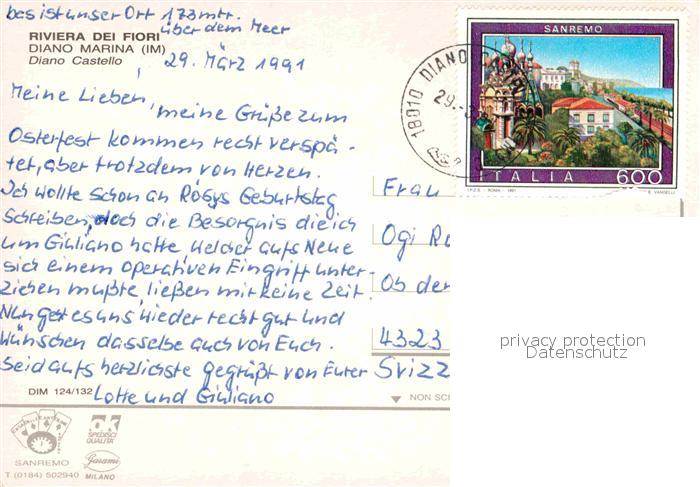 das ist unser Ort 173 mtr.
über dem Meer
RIVIERA DEI FIORI
DIANO MARINA (IM)
Diano Castello
29. März 1991
Meine Lieben,
meine Grüße zum
Osterfest kommen recht verspä-
tet, aber trotzdem von Herzen.
Ich wollte schon an Rösys Geburtstag
Schreiben, doch die Besorgnis die ich
um Giuliano hatte welcher aufs Neue
sich einem operativen Eingriff unter-
ziehen mußte, ließen mir keine Zeit.
Nun get es uns wieder recht gut und
wünschen dasselbe auch von Euch.
Seid aufs herzlichste gegrüßt von Eurer
Lotte und Giuliano
DIM 124/132
SANREMO
ITALIA 600
I.P.Z.S. - ROMA - 1991
E. VANGELLI
18010 DIANO
29.-3.
Frau
Ogi
Ob der
4323
Svizz
NON SC
privacy protection
Datenschutz
SANREMO
T. (0184) 502940
ok
SPEDISCI
QUALITA'
Garami
MILANO